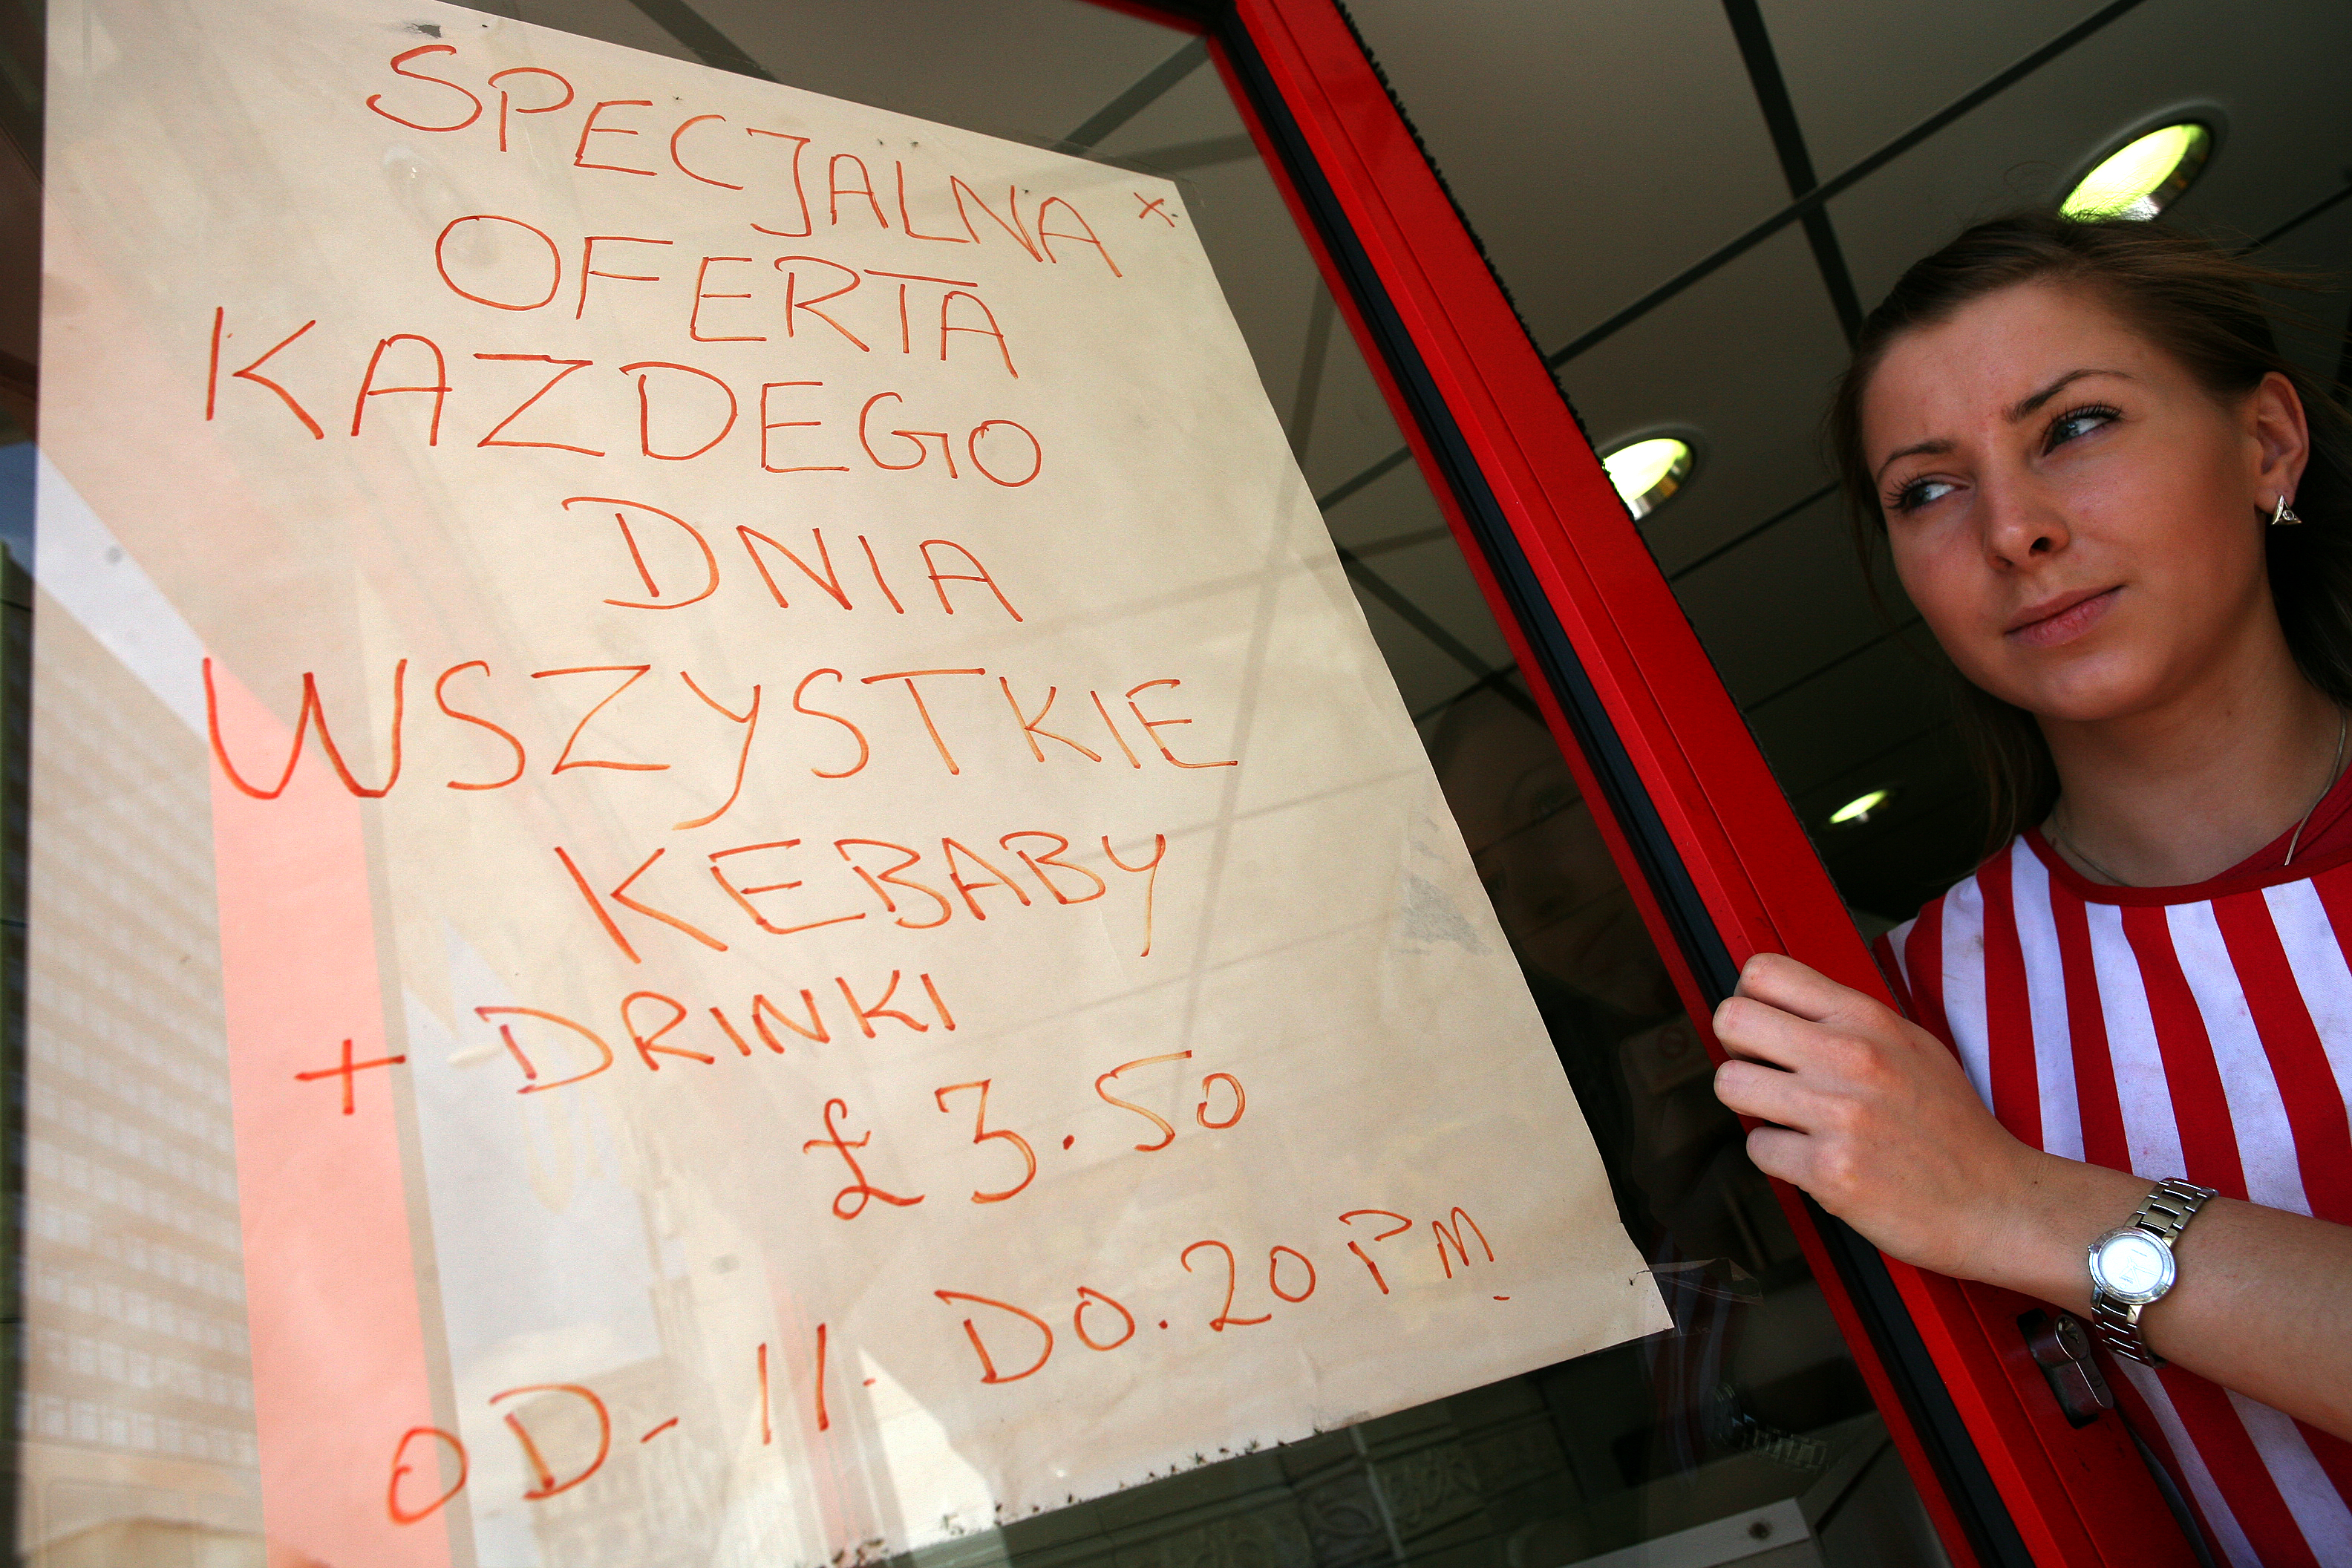 SPECJALNA x
OFERTA
KAZDEGO
DNIA
WSZYSTKIE
KEBABY
+ DRINKI
£3.50
OD- 11. DO. 20 PM.